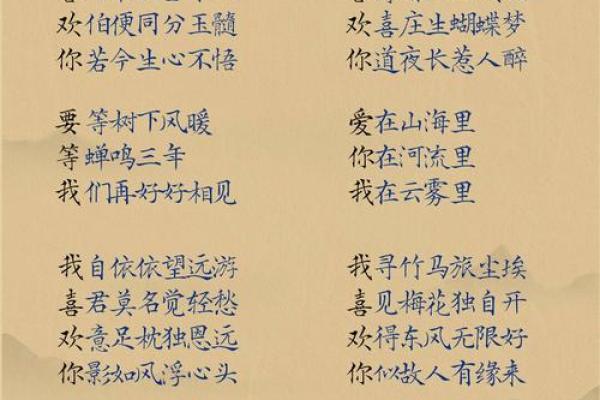 欢伯便同分玉髓
你若今生心不悟
要等树下风暖
等蝉鸣三年
我们再好好相见
我自依依望远游
喜君莫名觉轻愁
欢意足枕独恩远
你影如风浮心头
欢喜庄生蝴蝶梦
你道夜长惹人醉
爱在山海里
你在河流里
我在云雾里
我寻竹马旅尘埃
喜见梅花独自开
欢得东风无限好
你似故人有缘来